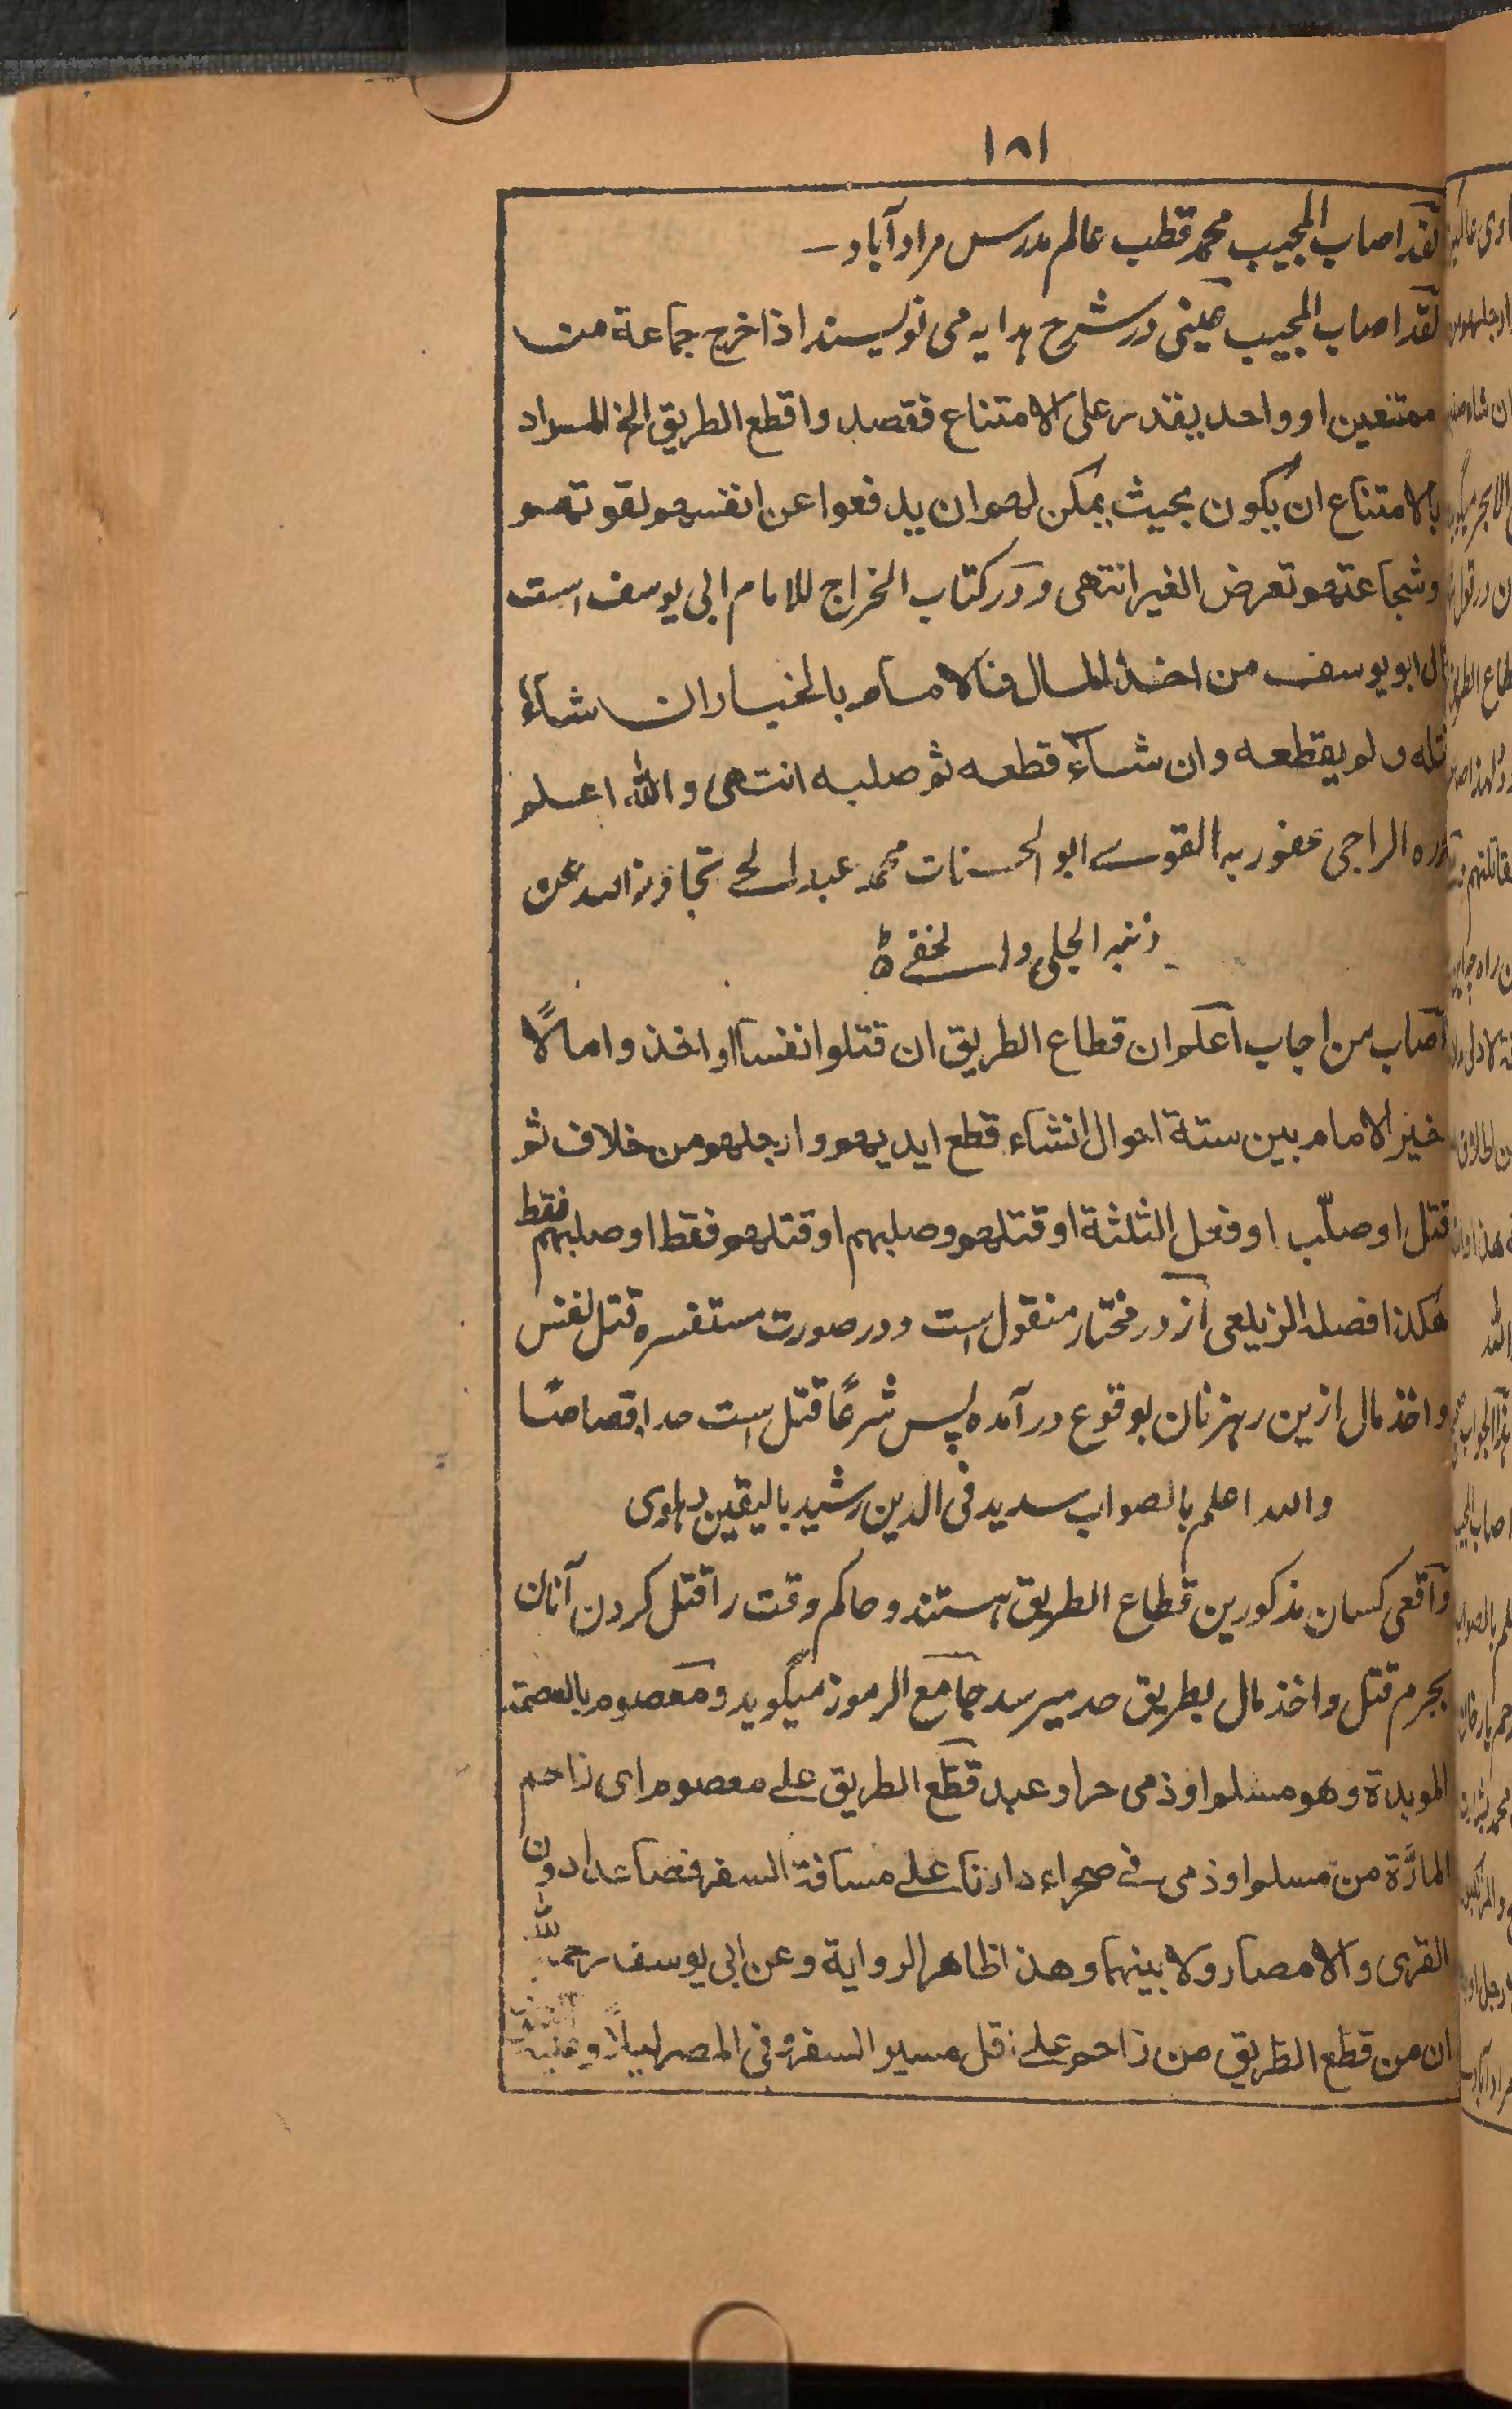 ۱۸۱
لقد اصاب المجیب محمد قطب عالم مدرس مرادآباد ـ
لقد اصاب المجیب عینی در شرح ہدایہ می نویسند اذا خرج جماعة من
ممتنعین او واحد یقدر علی الامتناع فقصدوا قطع الطریق الخ المراد
بالامتناع ان یکون بحیث یمکن لهم ان یدفعوا عن انفسهم لقوتهم
وشجاعتهم تعرض الغیر انتهی و در کتاب الخراج للامام ابی یوسف است
قال ابو یوسف من اخذ المال فالامام بالخیار ان شاء
قتله ولم یقطعه وان شاء قطعه ثم صلبه انتهی والله اعلم
حرره الراجی عفو ربه القوی ابو الحسنات محمد عبد الحی تجاوز الله عن
ذنبه الجلی والخفی ۵
اصاب من اجاب اعلم ان قطاع الطریق ان قتلوا نفسا او اخذوا مالاً
خیر الامام بین ستة احوال انشاء قطع ایدیهم وارجلهم من خلاف ثم
قتل او صلّب او فعل الثلثة او قتلهم وصلبهم او قتلهم فقط او صلبهم فقط
هکذا فصله الزیلعی از در مختار منقول است و در صورت مستفسره قتل نفس
و اخذ مال ازین رہزنان بوقوع در آمده پس شرعاً قتل است حدا قصاصًا
والله اعلم بالصواب سدید فی الدین رشید بالیقین دہلوی
واقعی کسان مذکورین قطاع الطریق ہستند و حاکم وقت را قتل کردن آنان
بجرم قتل و اخذ مال بطریق حد میرسد جامع الرموز میگوید ومعصوم بالعصمة
الموبدة وهو مسلم او ذمی حر او عبد قطع الطریق علی معصوم ای زاحم
المارّة من مسلم او ذمی فی صحراء دارنا علی مسافة السفر فصاعدا دون
القری والامصار ولا بینهما وهذا ظاهر الروایة وعن ابی یوسف رحمه الله
ان من قطع الطریق من زاحم علی اقل مسیر السفر وفی المصر لیلاً و علیه